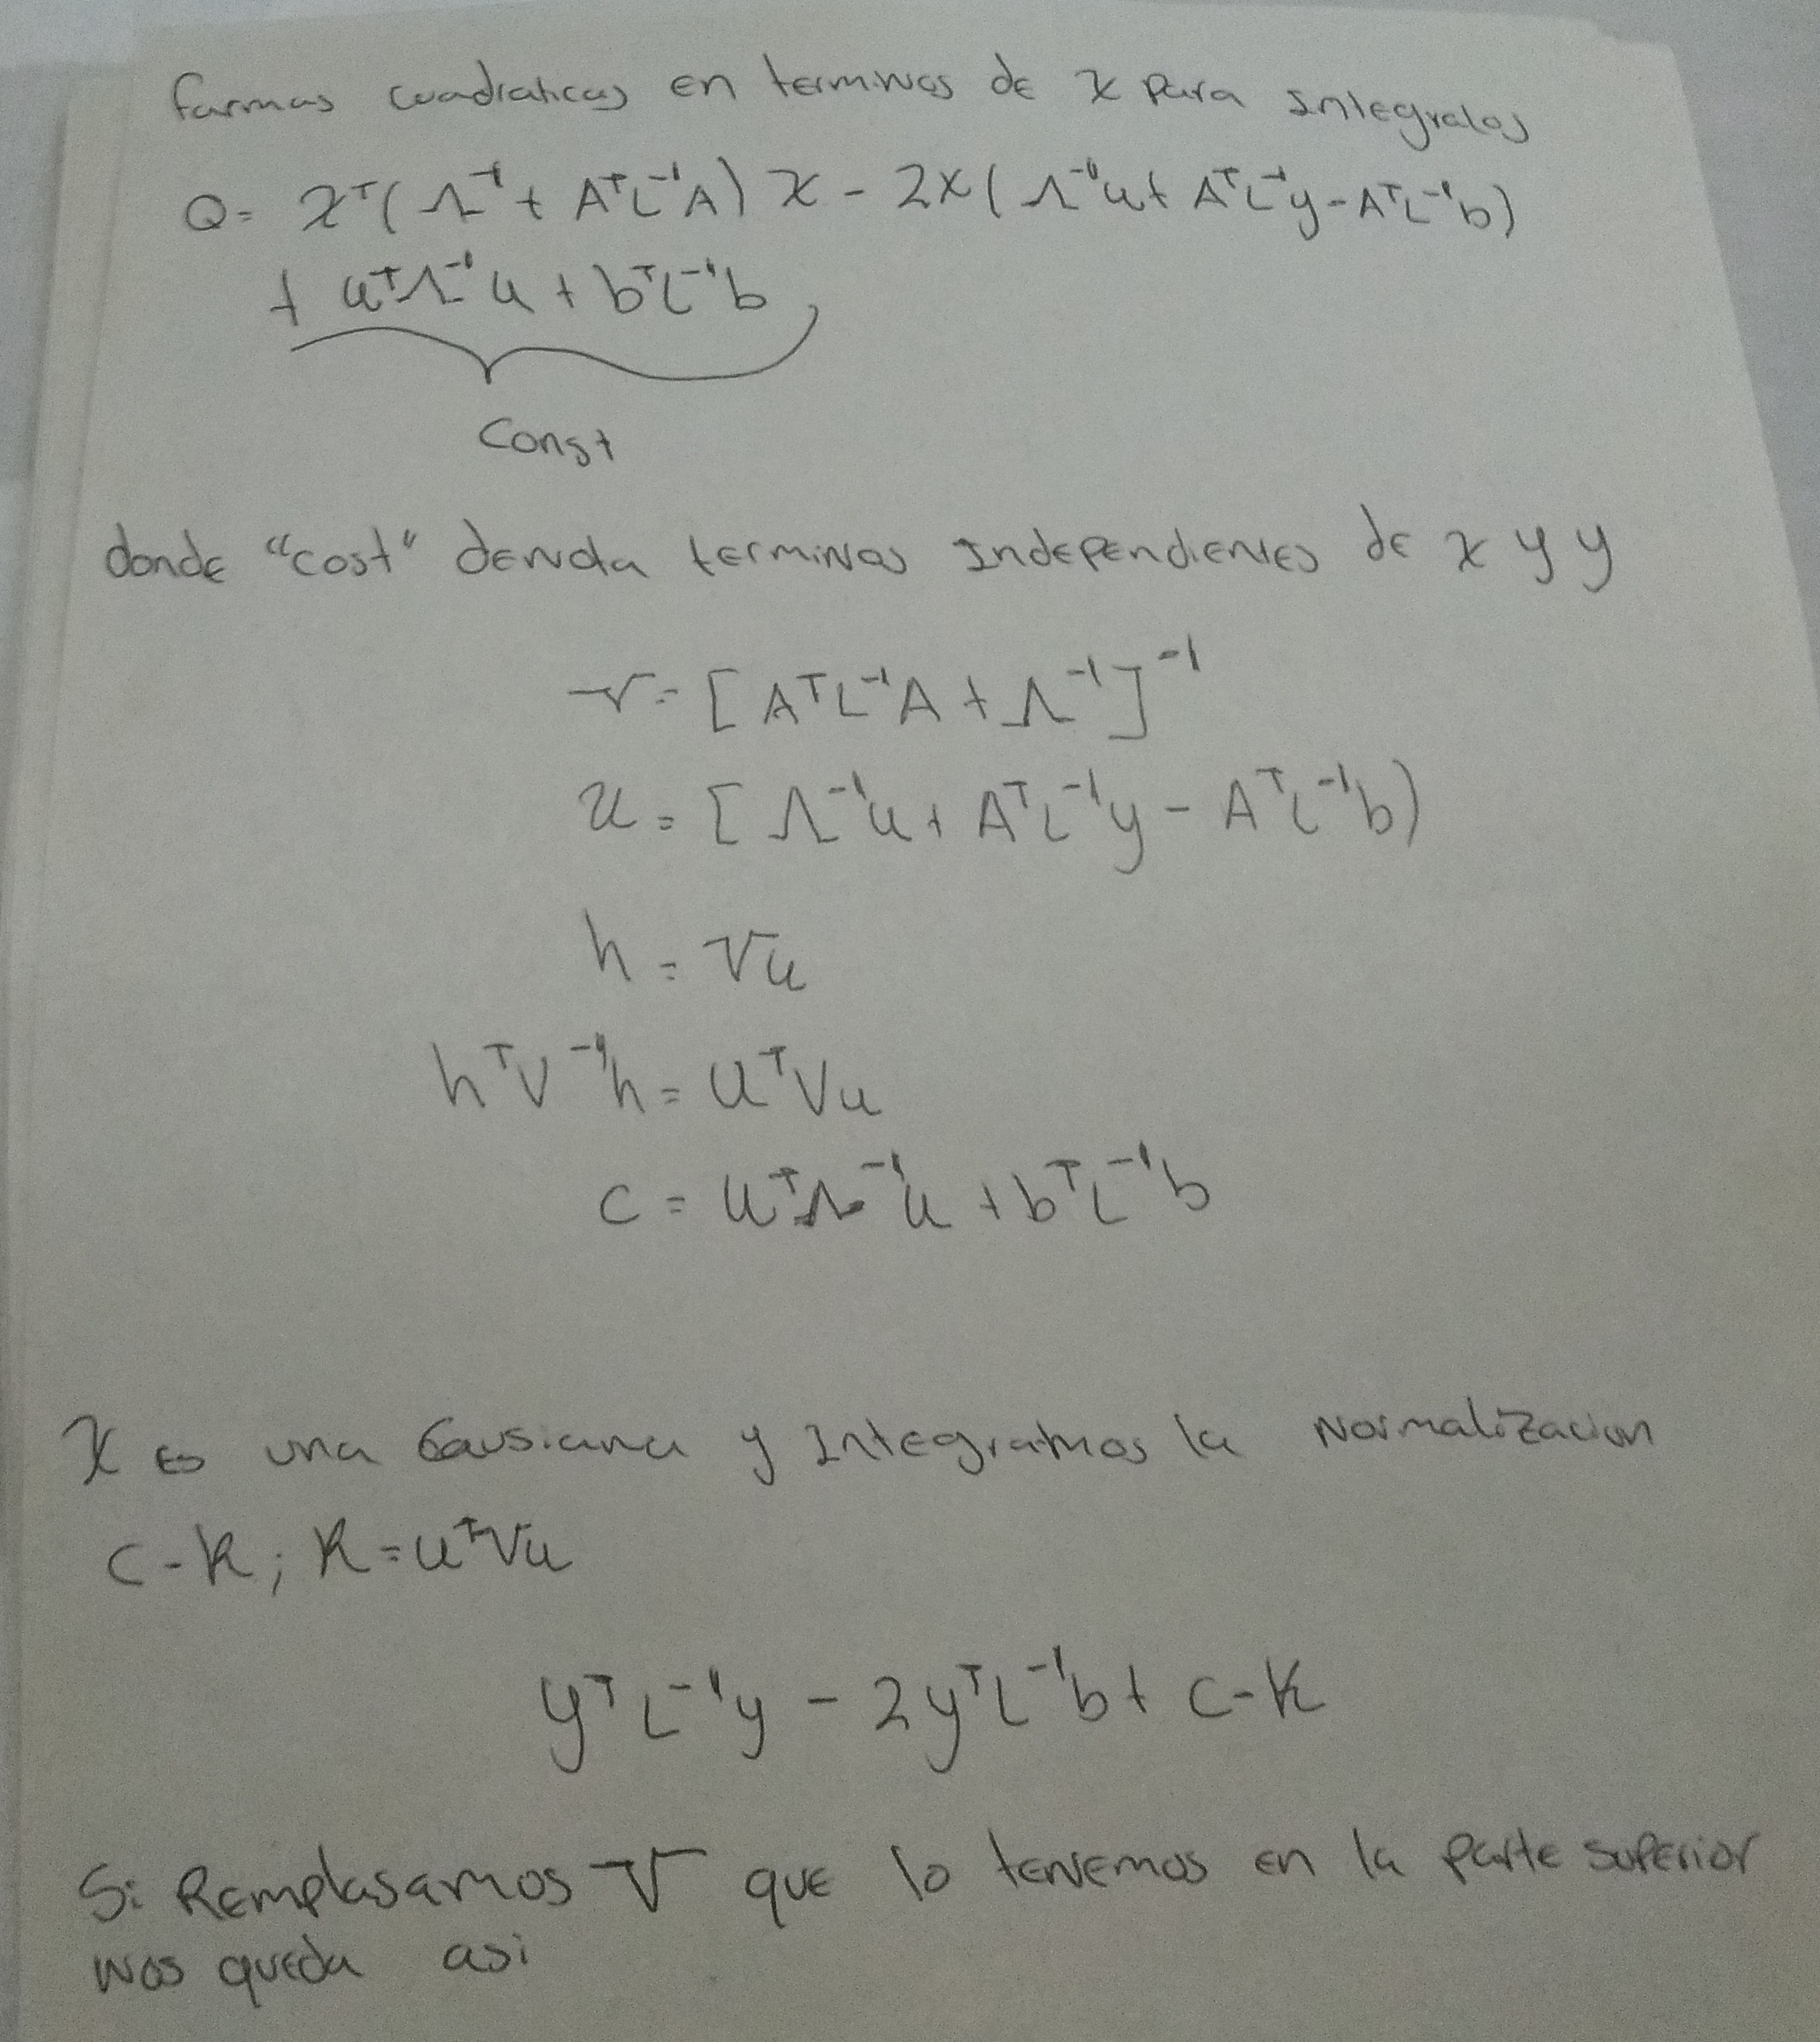 formas cuadraticas en terminos de x para Integralos
Q = x^T(Λ^-1 + A^T L^-1 A) x - 2x(Λ^-1 u + A^T L^-1 y - A^T L^-1 b)
+ u^T Λ^-1 u + b^T L^-1 b
Const
donde "cost" denota terminos Independientes de x y y
V = [A^T L^-1 A + Λ^-1]^-1
u = [Λ^-1 u + A^T L^-1 y - A^T L^-1 b)
h = Vu
h^T V^-1 h = u^T Vu
c = u^T Λ^-1 u + b^T L^-1 b
x es una Gausiana y Integramos la Normalizacion
c-k; k = u^T Vu
y^T L^-1 y - 2y^T L^-1 b + c-k
Si Remplasamos V que lo tenemos en la parte superior
nos queda asi